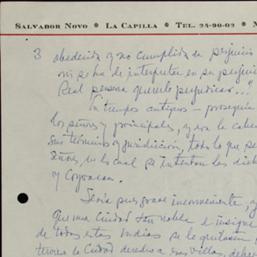 SALVADOR NOVO • LA CAPILLA • TEL. 24-90-62 •
3 obedecida y no cumplida en perjuicio
ni se ha de interpretar en su perjuicio
Real persona querelo perjudicar...
En tiempos antiguos — prosequia
los señores y principales, y son la cabe
sus términos y jurisdicción, todo lo que se
años, en lo cual se intentan los dich
y Coyoacan.
Sería pues grave inconveniente, q
que una Ciudad tan noble e insigne
de todas estas Indias se le quitasen,
tuviera la Ciudad derecho a sus Villas, deba